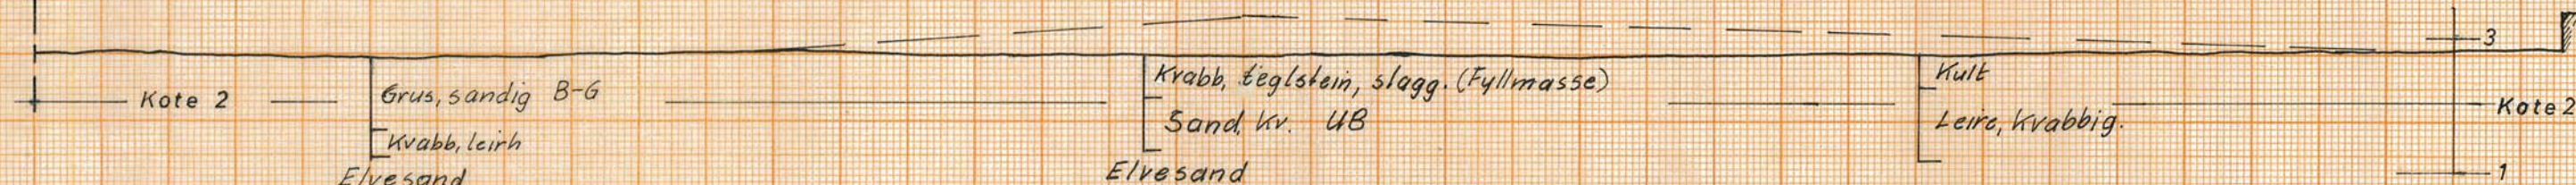 3
Kote 2
Grus, sandig B-G
Kvabb, leirh
Elvesand
Kvabb, teglstein, slagg. (Fyllmasse)
Sand, kv. UB
Elvesand
Kult
Leire, kvabbig.
Kote 2
1